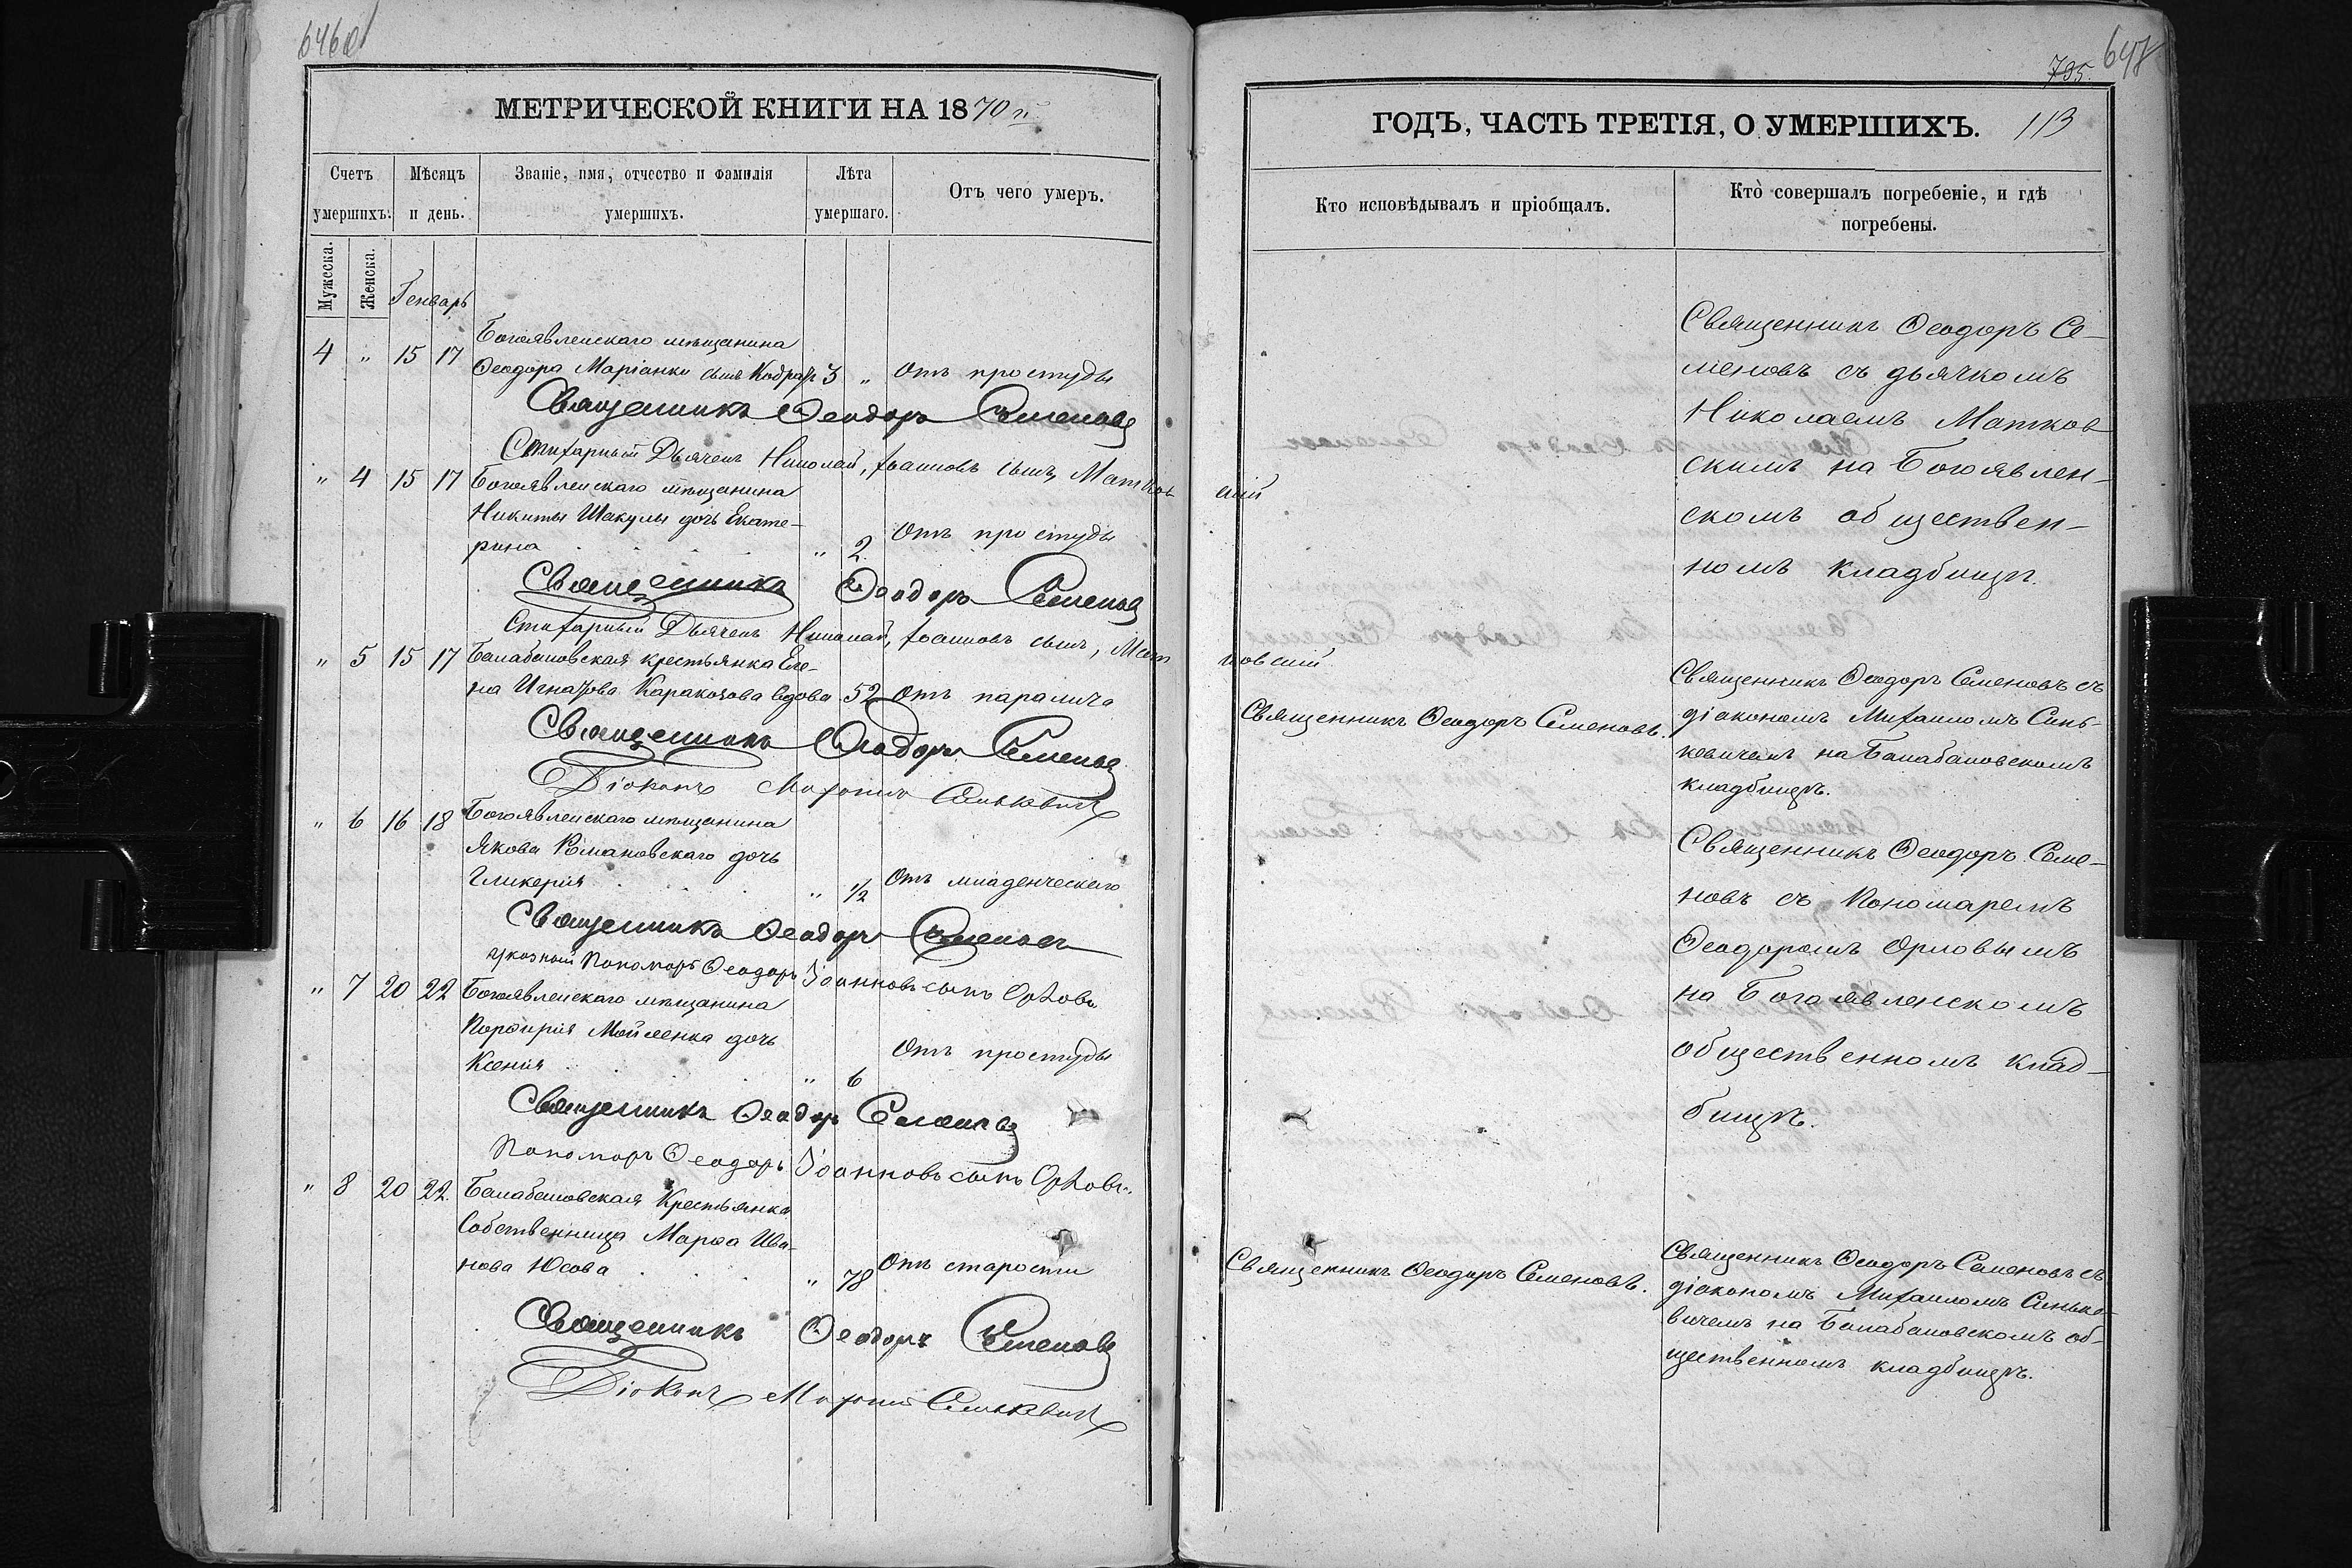 646об
МЕТРИЧЕСКОЙ КНИГИ НА 1870й
Счетъ умершихъ.
Мѣсяцъ и день.
Званіе, имя, отчество и фамилія умершихъ.
Лѣта умершаго.
Отъ чего умеръ.
Мужеска.
Женска.
Генварь
Богоявленскаго мѣщанина
4 " 15 17 Ѳеодора Маріанки сынъ 3 " Отъ простуды
Священникъ Ѳеодоръ Семеновъ
Стихарный Дьячекъ Николай, Іоанновъ сынъ, Матков
скій
" 4 15 17 Богоявленскаго мѣщанина
Никиты Шакулы дочь Екате-
рина " 2. Отъ простуды
Священникъ Ѳеодоръ Семеновъ
Стихарный Дьячекъ Николай, Іоанновъ сынъ, Мат
ковскій
" 5 15 17 Балабановская крестьянка Еле-
на Игнатова Каракозова вдова 52 Отъ паралича
Священникъ Ѳеодоръ Семеновъ
Діаконъ Михаилъ Синькевичъ
" 6 16 18 Богоявленскаго мѣщанина
Якова Романовскаго дочь
Гликерія " 1/2 Отъ младенческаго
Священникъ Ѳеодоръ Семеновъ
Пономарь Ѳеодоръ Іоанновъ сынъ Орловъ
" 7 20 22 Богоявленскаго мѣщанина
Порфирія Мойленка дочь
Ксенія " 6 Отъ простуды
Священникъ Ѳеодоръ Семеновъ
Пономарь Ѳеодоръ Іоанновъ сынъ Орловъ.
" 8 20 22. Балабановская Крестьянка
Собственница Марѳа Ива-
нова Юсова " 78 Отъ старости
Священникъ Ѳеодоръ Семеновъ
Діаконъ Михаилъ Синькевичъ
795. 647
ГОДЪ, ЧАСТЬ ТРЕТІЯ, О УМЕРШИХЪ. 113
Кто исповѣдывалъ и пріобщалъ.
Кто совершалъ погребеніе, и гдѣ
погребены.
Священникъ Ѳеодоръ Се-
меновъ съ дьячкомъ
Николаемъ Матков
скимъ на Богоявлен-
скомъ обществен-
номъ кладбищѣ.
Священникъ Ѳеодоръ Семеновъ.
Священникъ Ѳеодоръ Семеновъ съ
діакономъ Михаиломъ Синь-
кевичемъ на Балабановскомъ
кладбищѣ.
Священникъ Ѳеодоръ Семе-
новъ съ Пономаремъ
Ѳеодоромъ Орловымъ
на Богоявленскомъ
общественномъ клад-
бищѣ.
Священникъ Ѳеодоръ Семеновъ.
Священникъ Ѳеодоръ Семеновъ съ
діакономъ Михаиломъ Синьке-
вичемъ на Балабановскомъ об-
щественномъ кладбищѣ.